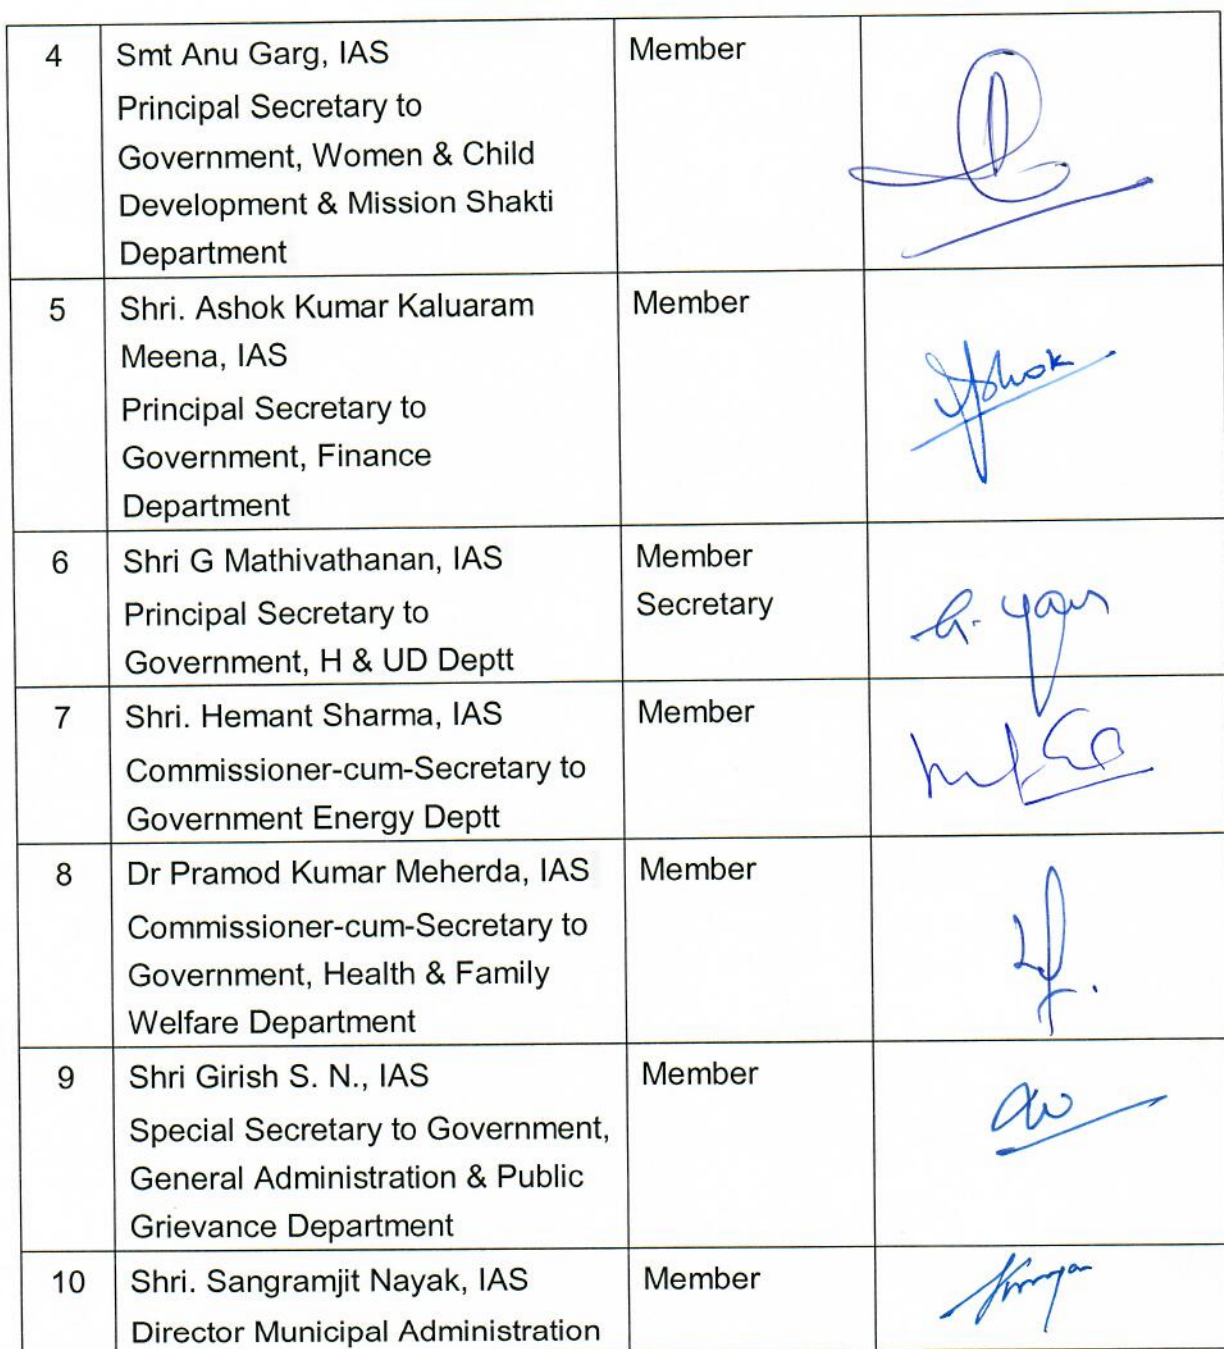 4 Smt Anu Garg, IAS Member
Principal Secretary to
Government, Women & Child
Development & Mission Shakti
Department
5 Shri. Ashok Kumar Kaluaram Member
Meena, IAS
Principal Secretary to
Government, Finance
Department
Ashok
6 Shri G Mathivathanan, IAS Member
Principal Secretary to Secretary
Government, H & UD Deptt
7 Shri. Hemant Sharma, IAS Member
Commissioner-cum-Secretary to
Government Energy Deptt
8 Dr Pramod Kumar Meherda, IAS Member
Commissioner-cum-Secretary to
Government, Health & Family
Welfare Department
9 Shri Girish S. N., IAS Member
Special Secretary to Government,
General Administration & Public
Grievance Department
10 Shri. Sangramjit Nayak, IAS Member
Director Municipal Administration